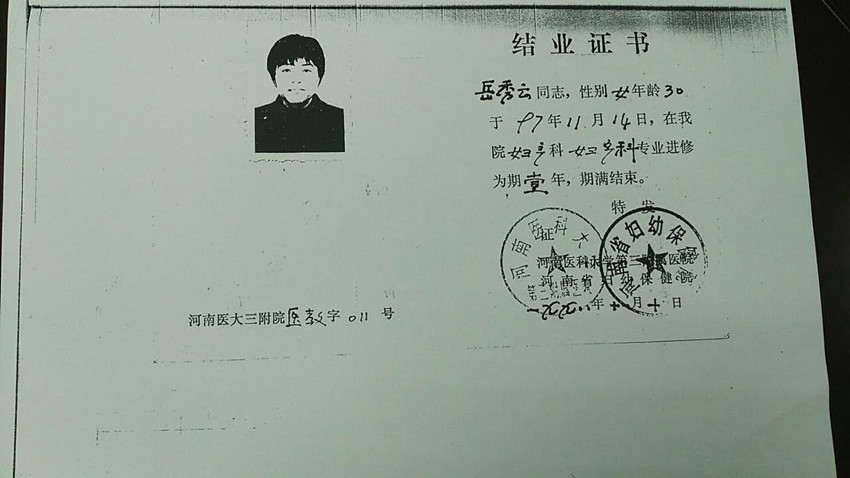 结业证书
岳秀云同志，性别女年龄30
于97年11月14日，在我
院妇产科妇产科专业进修
为期壹年，期满结束。
特发
证
河南医科大学第三附属医院
河南省妇幼保健院
年十一月十日
河南医大三附院医教字011号